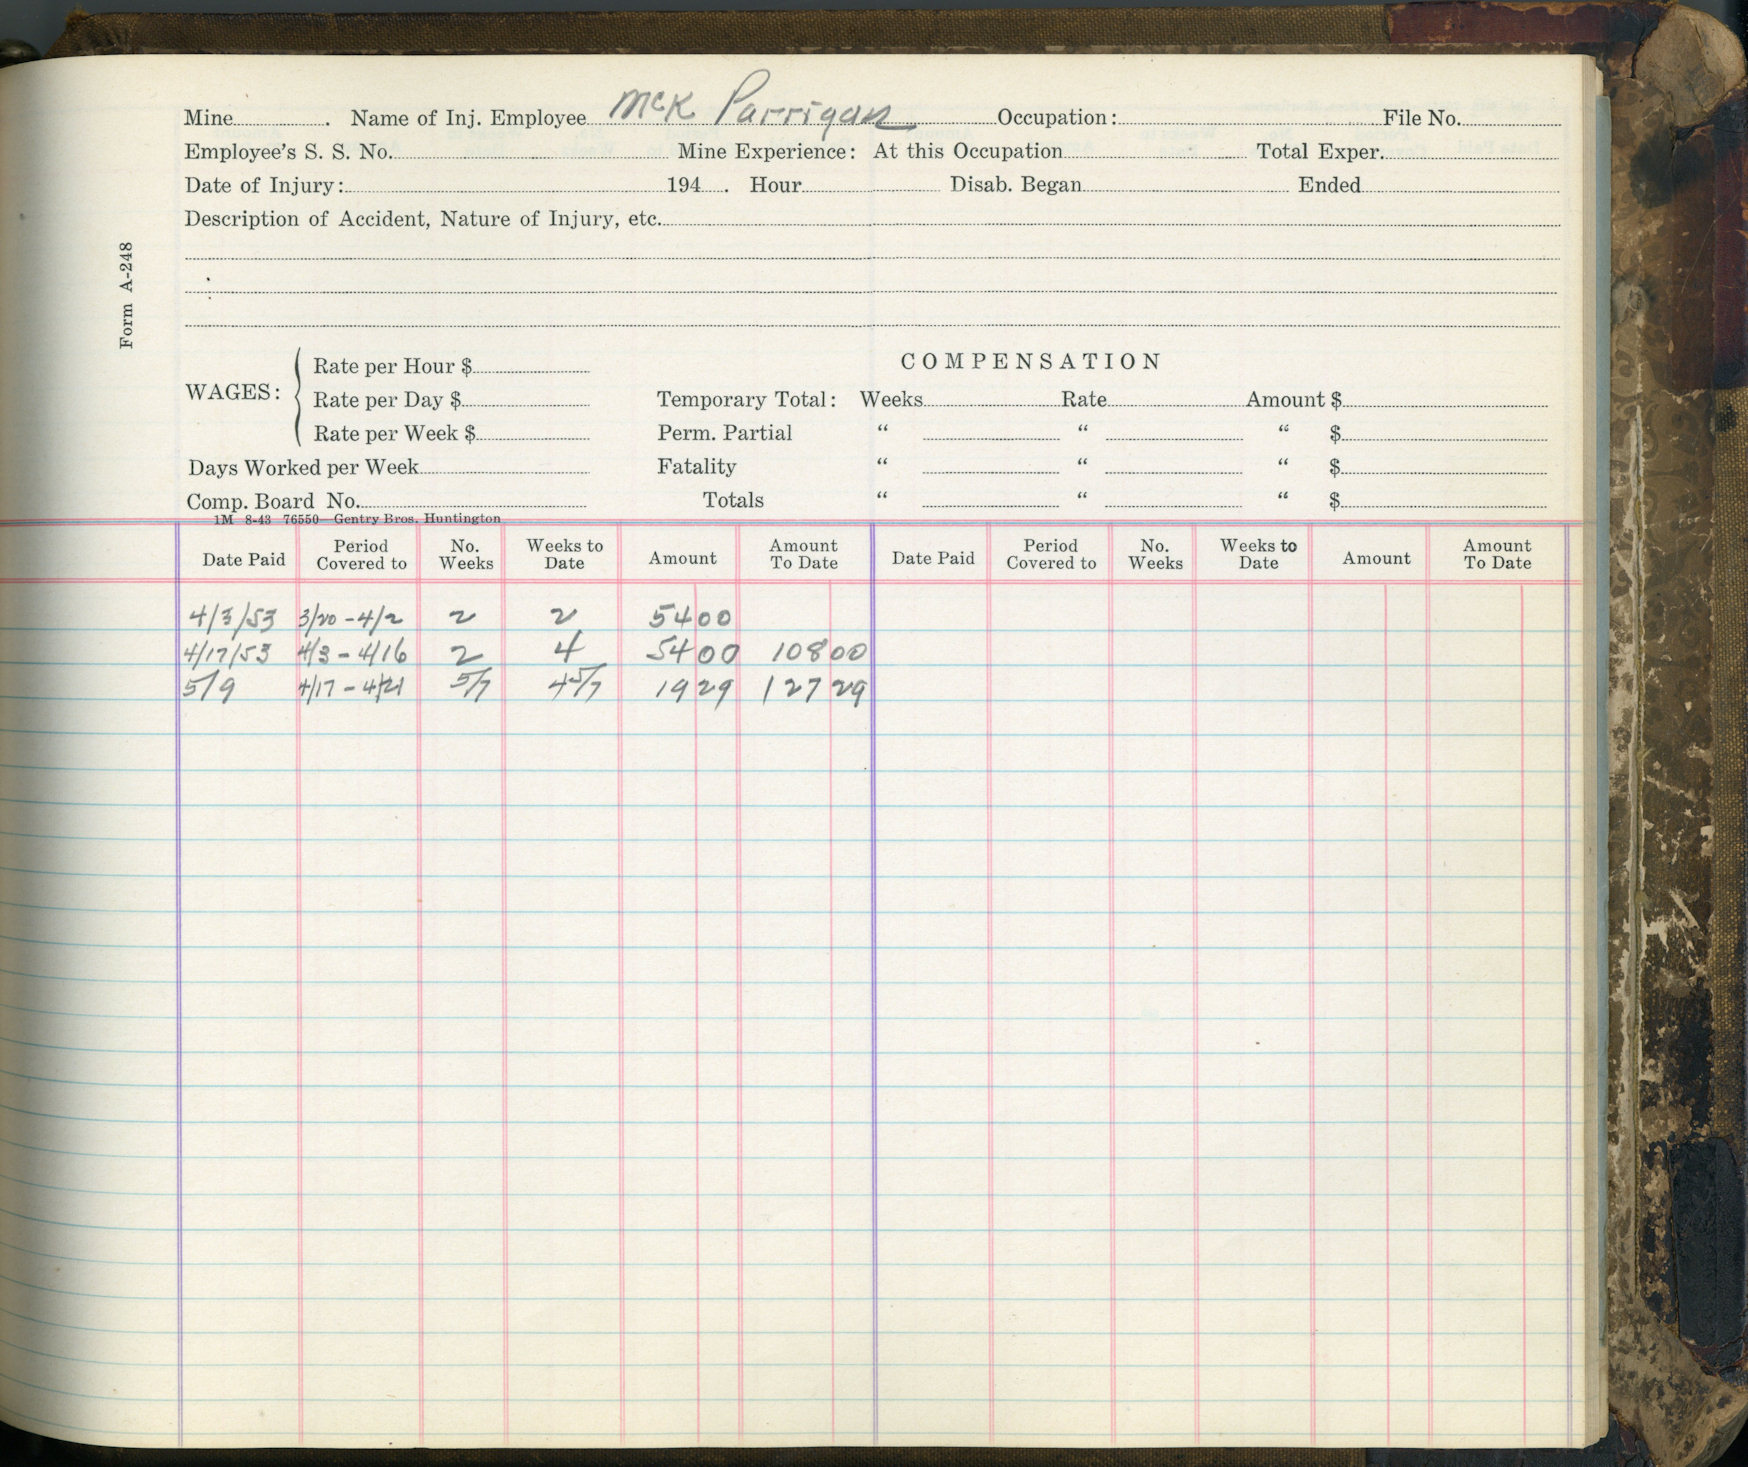 Mine . Name of Inj. Employee McK Parrigan Occupation: File No.
Employee's S. S. No. Mine Experience: At this Occupation Total Exper.
Date of Injury: 194 . Hour Disab. Began Ended
Description of Accident, Nature of Injury, etc.
Form A-248
COMPENSATION
WAGES: Rate per Hour $
Rate per Day $ Temporary Total: Weeks Rate Amount $
Rate per Week $ Perm. Partial " " " $
Days Worked per Week Fatality " " " $
Comp. Board No. Totals " " " $
1M 8-43 76550—Gentry Bros. Huntington
Date Paid Period Covered to No. Weeks Weeks to Date Amount Amount To Date Date Paid Period Covered to No. Weeks Weeks to Date Amount Amount To Date
4/3/53 3/20-4/2 2 2 54 00
4/17/53 4/3-4/16 2 4 54 00 108 00
5/9 4/17-4/21 5/7 4 5/7 19 29 127 29